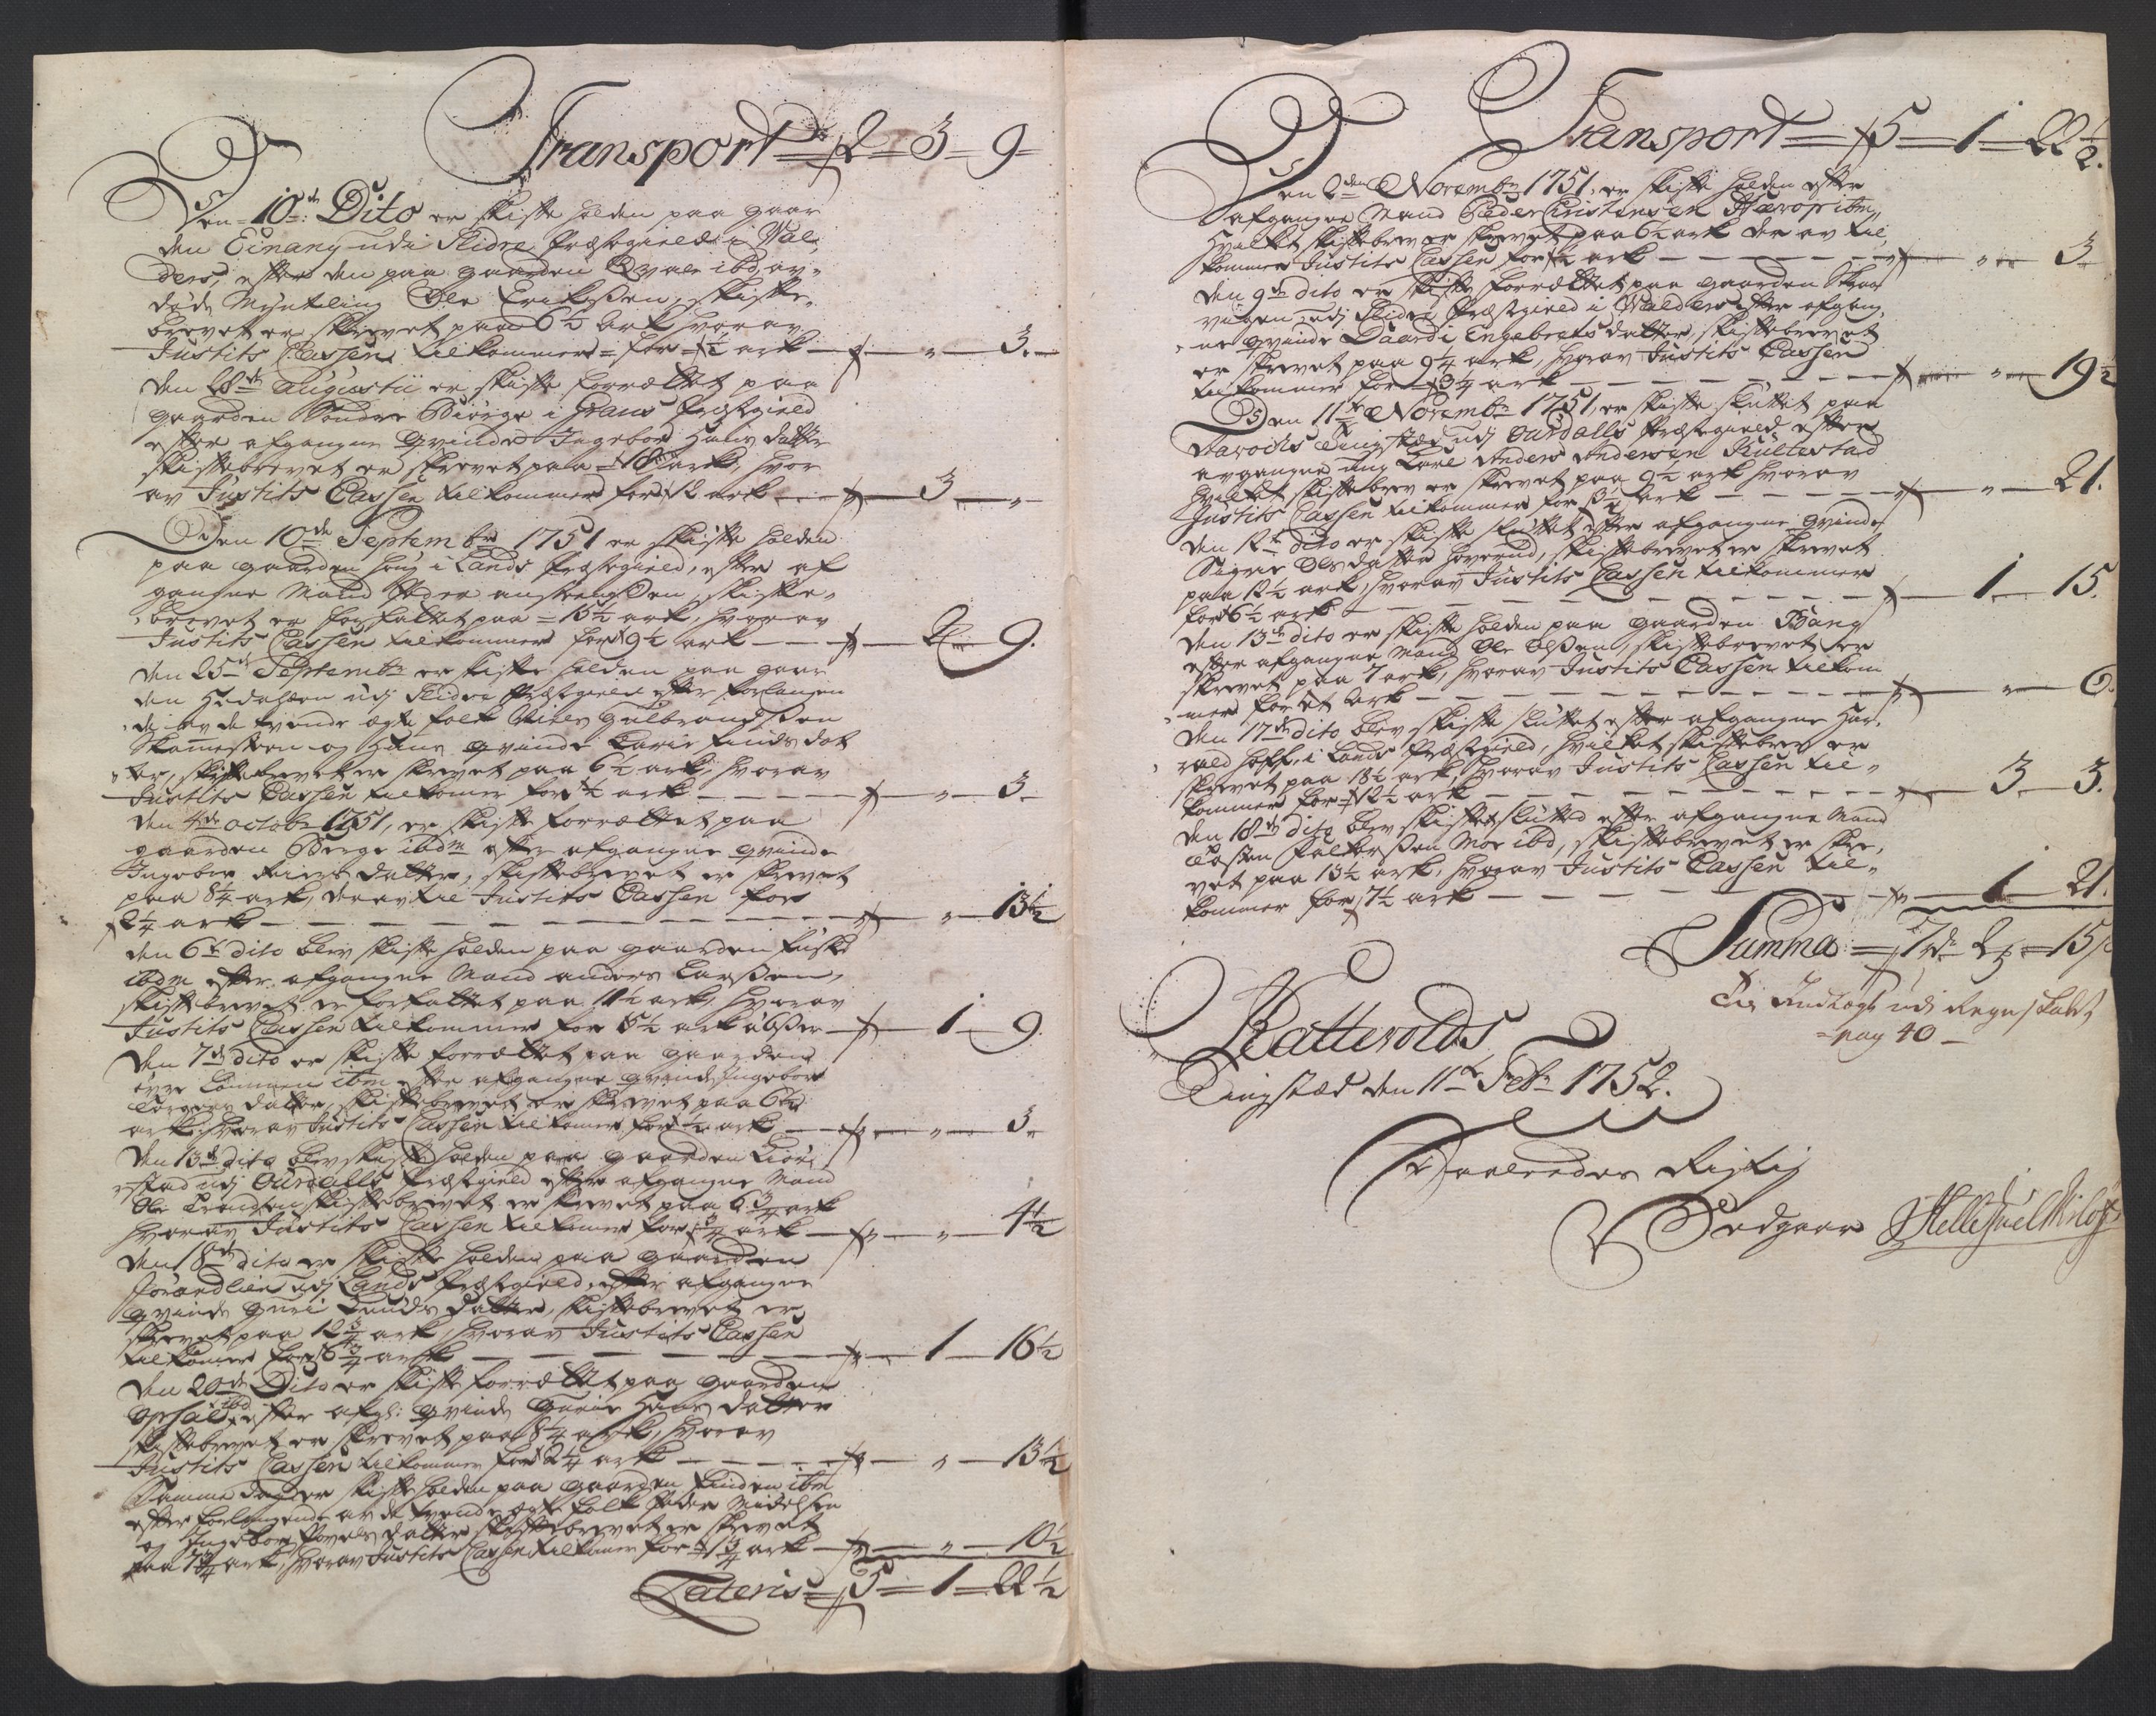 Transport = 2 = 3 = 9 =
Den 10de Dito er skifte holden paa gaar
den Einang udi Slidre Præstegield i Wal
ders, efter den paa gaarden Qvale ibd, av-
døde Myntling Ole Erikssen, skifte-
brevet er skrevet paa 6 1/2 Ark hvor av
Justits Cassen tilkommer = for = 1/2 ark — " — 3.
Den 28de Augustii er skifte forrættet paa
gaarden Søndre Biørge i Grans Præstgield
efter afgangne Qvinde Ingebor Hans datter
skiftebrevet er skrevet paa = 18 ark, hvor
av Justits Cassen tilkommer for 12 ark — 3 — "
Den 10de Septembr 1751 er skifte holden
paa gaarden Houg i Lands Præstegield, efter af
gangne Mand Peder anstensen, skifte-
brevet er forfattet paa = 15 1/2 ark, hvor av
Justits Cassen tilkommer for 9 1/2 ark — 2 — 9.
Den 25de Septembr er skifte holden paa gaar
den udi Slidre Præstgield efter forlangen
de av de tvende ægte folk Niels Gulbrandssen
og Hans qvinde Karie finds dat
ter, skiftebrevet er skrevet paa 6 1/2 ark, hvorav
Justits Cassen tilkomer for 1/2 ark — " — 3.
Den 4de octobr 1751, er skifte forrættet paa
gaarden Berge ibdm efter afgangne qvinde
Ingebor datter, skiftebrevet er skrevet
paa 8 1/4 ark, der av til Justits Cassen for
2 1/4 ark — " — 13 1/2
Den 6te dito blev skifte holden paa gaarden
ibdm efter afgangne Mand anders Larssen,
skiftebrevet er forfattet paa 11 1/2 ark, hvorav
Justits Cassen tilkommer for 5 1/2 ark — 1 — 9.
Den 7de dito er skifte forrættet paa gaarden
øvre Lommen ibm efter afgangne qvinde Ingebor
datter, skiftebrevet er skrevet paa 6 1/2
ark hvorav Justits Cassen tilkomer for 1/2 ark — " — 3.
Den 13de dito blev skifte holden paa gaarden
stad udj Ourdalls Præstgield efter afgangne Mand
Ole skiftebrevet er skrevet paa 6 3/4 ark
hvorav Justits Cassen tilkomer for 3/4 ark — " — 4 1/2
Den 18de dito er skifte holden paa gaarden
udj Lands Præstgield, efter afgangne
qvinde Guri Knuds datter, skiftebrevet er
skrevet paa 12 3/4 ark, hvorav Justits Cassen
tilkomer for 6 3/4 ark — 1 — 16 1/2
Den 20de Dito er skifte forrættet paa gaarden
Opsal ibd efter afg: qvinde Guri Hans datter
skiftebrevet er skrevet paa 8 1/4 ark, hvorav
Justits Cassen tilkommer for 2 1/4 ark — " — 13 1/2
Samme dag er skifte holden paa gaarden ibm
efter forlangende av de tvende ægte folk Peder
og Ingebor Povels datter skiftebrevet er skrevet
paa 7 3/4 ark, hvorav Justits Cassen tilkomer for = 1 3/4 ark — " — 10 1/2
Lateris = 5 = 1 = 22 1/2
Transport = 5 = 1 = 22 1/2.
Den 2den Novembr 1751, er skifte holden efter
afgangne Mand Peder Christensen ibm,
hvilket skiftebrev er skrevet paa 6 1/2 ark der av til
kommer Justits Cassen for 1/2 ark — " — 3
Den 9de dito er skifte forrættet paa gaarden
udj Slidre Præstgield i Walders efter afgang
ne qvinde Engebrets datter, skiftebrevet
er skrevet paa 9 1/4 ark, hvorav Justits Cassen
tilkommer for 3 1/4 ark — " — 19 1/2
Den 11te Novembr 1751, er skifte sluttet paa
Tingstæd udj Ourdalls Præstegield efter
avgangne ung Karl Anders Andersen
hvilket skiftebrev er skrevet paa 9 1/2 ark hvorav
Justits Cassen tilkommer for 3 1/2 ark — " — 21.
Den 12te dito er skifte sluttet efter afgangne qvinde
Sigrie Ols datter skiftebrevet er skrevet
paa 12 1/2 ark, hvorav Justits Cassen tilkommer
for 6 1/2 ark — 1 — 15.
Den 13de dito er skifte holden paa gaarden Wang
efter afgangne Mand Ole Olssen, skiftebrevet er
skrevet paa 7 ark, hvorav Justits Cassen tilkom
mer for et Ark — " — 6.
Den 17de dito blev skifte sluttet efter afgangne Har
rald Hoff, i Lands Præstgield, hvilket skiftebrev er
skrevet paa 18 1/2 ark, hvorav Justits Cassen til-
kommer for 12 1/2 ark — 3 — 3.
Den 18de dito blev skiftet sluttet efter afgangne Mand
Tosten Moe ibd, skiftebrevet er skre-
vet paa 13 1/2 ark, hvorav Justits Cassen til-
kommer for 7 1/2 ark — 1 — 21.
Summa = 7 rdr 2 = 15
Til Indtægt udi Regnskabet
= pag 40 —
Tingstæd den 11te Febr 1752.
Saaledes Rigtig